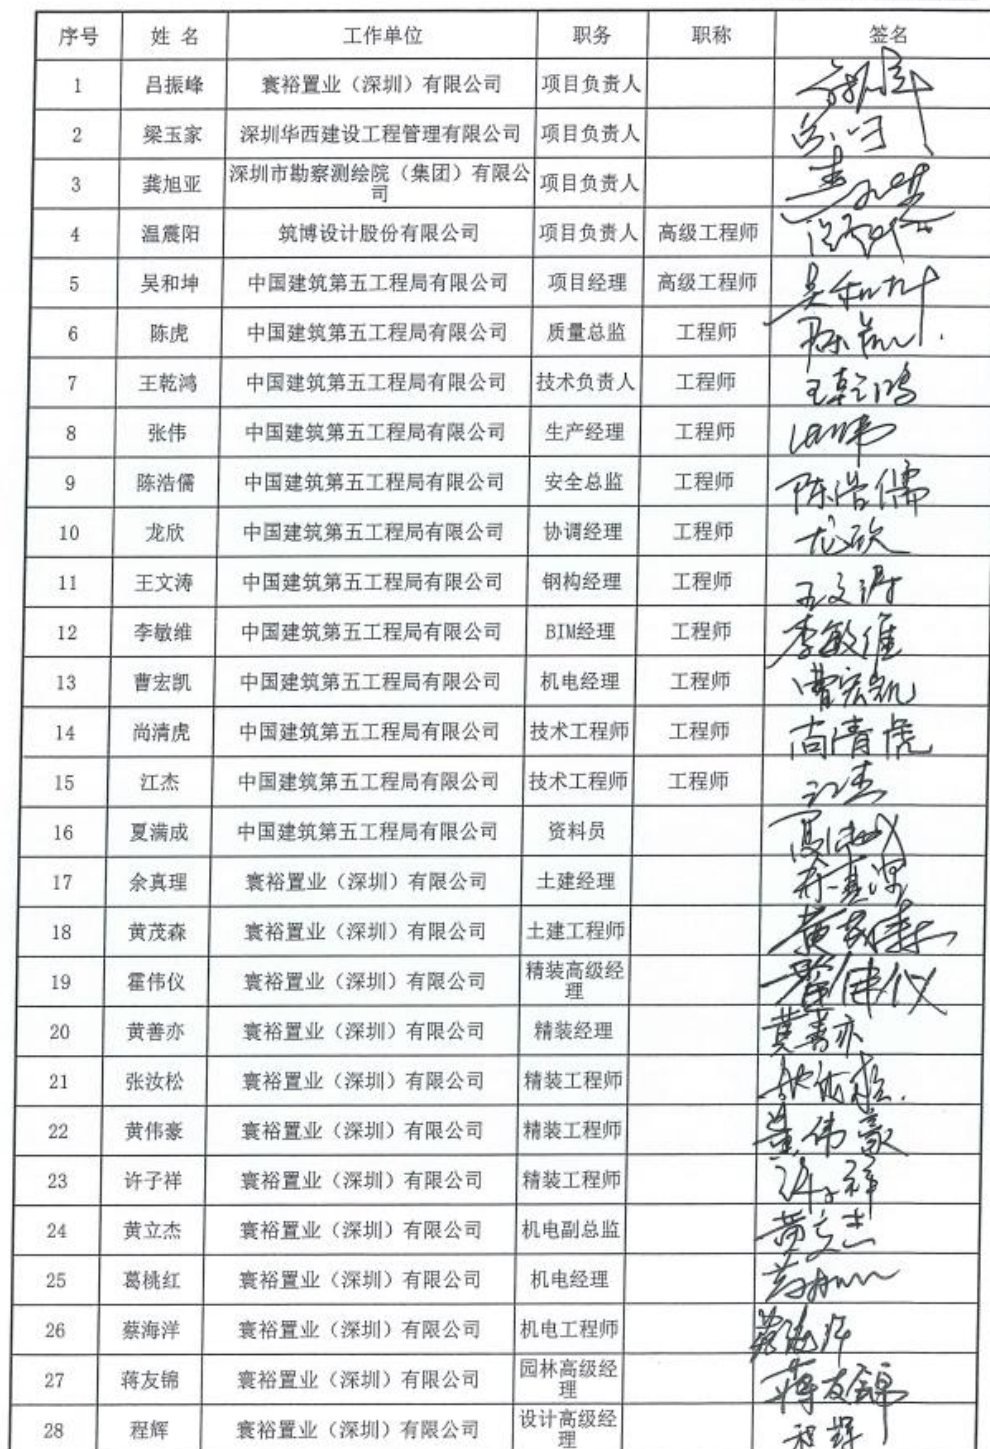 序号 姓 名 工作单位 职务 职称 签名
1 吕振峰 寰裕置业（深圳）有限公司 项目负责人
2 梁玉家 深圳华西建设工程管理有限公司 项目负责人
3 龚旭亚 深圳市勘察测绘院（集团）有限公司 项目负责人
4 温震阳 筑博设计股份有限公司 项目负责人 高级工程师
5 吴和坤 中国建筑第五工程局有限公司 项目经理 高级工程师 吴和坤
6 陈虎 中国建筑第五工程局有限公司 质量总监 工程师
7 王乾鸿 中国建筑第五工程局有限公司 技术负责人 工程师 王乾鸿
8 张伟 中国建筑第五工程局有限公司 生产经理 工程师 张伟
9 陈浩儒 中国建筑第五工程局有限公司 安全总监 工程师 陈浩儒
10 龙欣 中国建筑第五工程局有限公司 协调经理 工程师 龙欣
11 王文涛 中国建筑第五工程局有限公司 钢构经理 工程师 王文涛
12 李敏维 中国建筑第五工程局有限公司 BIM经理 工程师 李敏维
13 曹宏凯 中国建筑第五工程局有限公司 机电经理 工程师 曹宏凯
14 尚清虎 中国建筑第五工程局有限公司 技术工程师 工程师 尚清虎
15 江杰 中国建筑第五工程局有限公司 技术工程师 工程师 江杰
16 夏满成 中国建筑第五工程局有限公司 资料员
17 余真理 寰裕置业（深圳）有限公司 土建经理 余真理
18 黄茂森 寰裕置业（深圳）有限公司 土建工程师 黄茂森
19 霍伟仪 寰裕置业（深圳）有限公司 精装高级经理 霍伟仪
20 黄善亦 寰裕置业（深圳）有限公司 精装经理 黄善亦
21 张汝松 寰裕置业（深圳）有限公司 精装工程师 张汝松
22 黄伟豪 寰裕置业（深圳）有限公司 精装工程师 黄伟豪
23 许子祥 寰裕置业（深圳）有限公司 精装工程师 许子祥
24 黄立杰 寰裕置业（深圳）有限公司 机电副总监 黄立杰
25 葛桃红 寰裕置业（深圳）有限公司 机电经理
26 蔡海洋 寰裕置业（深圳）有限公司 机电工程师 蔡海洋
27 蒋友锦 寰裕置业（深圳）有限公司 园林高级经理 蒋友锦
28 程辉 寰裕置业（深圳）有限公司 设计高级经理 程辉